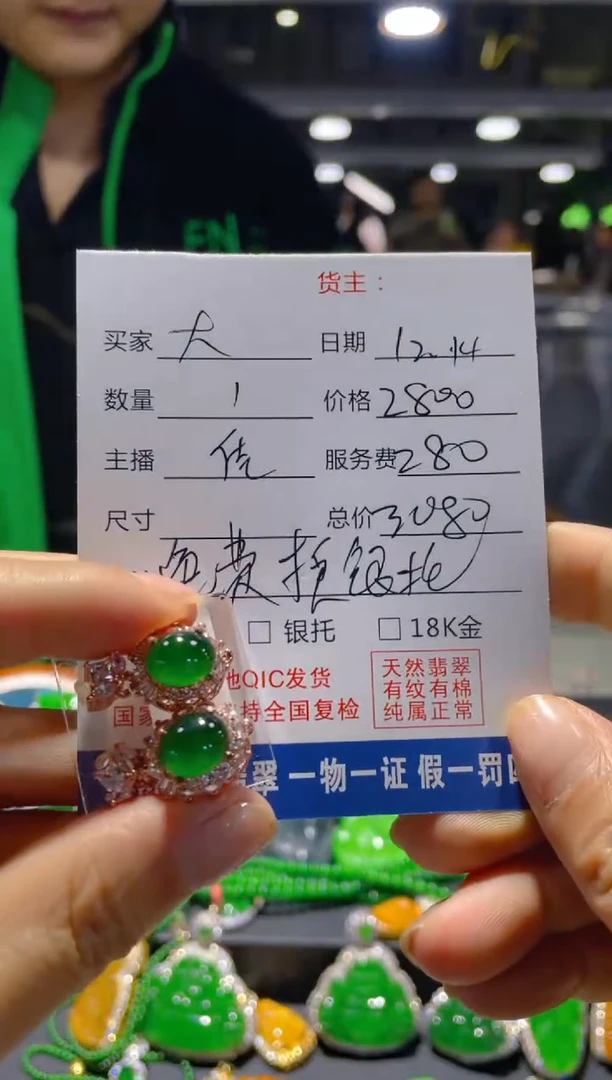 FN
货主：
买家 大 日期 12.14
数量 1 价格 2800
主播 统 服务费 280
尺寸 总价 3080
免费 换银托
□ 银托 □ 18K金
地QIC发货
国家 持全国复检
天然翡翠
有纹有棉
纯属正常
翠 一物一证 假一罚